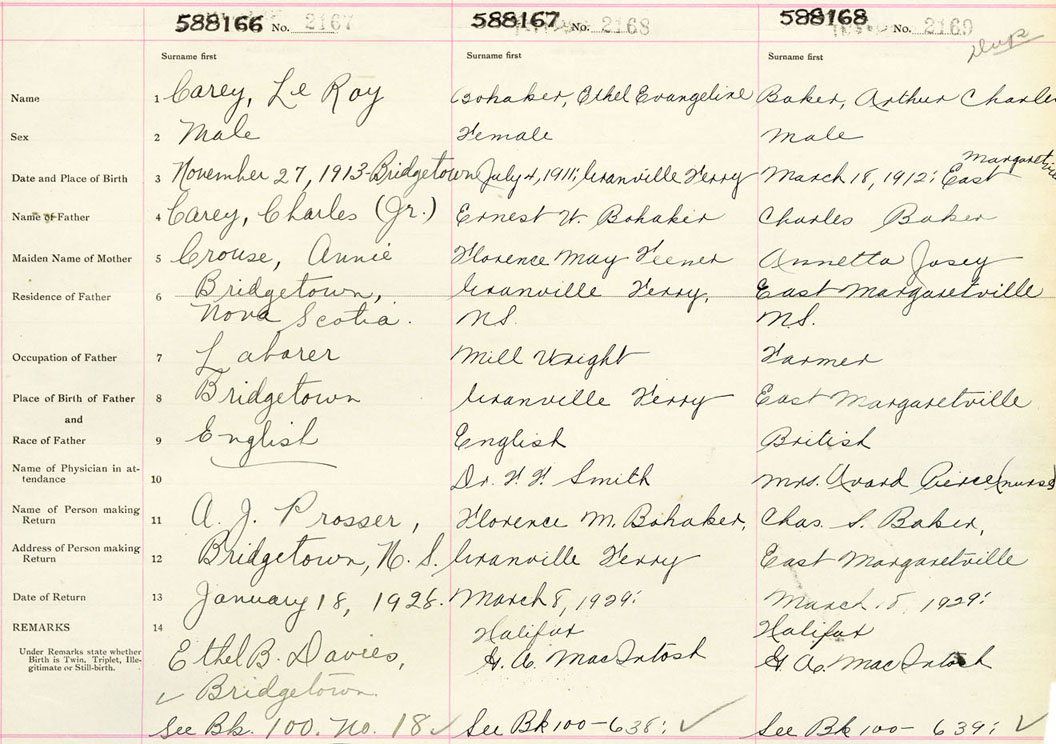 588166 No. 2167 588167 No. 2168 588168 No. 2169
Dup
Surname first Surname first Surname first
Name 1 Carey, Le Roy Bohaker, Ethel Evangeline Baker, Arthur Charles
Sex 2 Male Female Male
Date and Place of Birth 3 November 27, 1913 - Bridgetown July 4, 1911; Granville Ferry March 18, 1912; East Margaretville
Name of Father 4 Carey, Charles (Jr.) Ernest W. Bohaker Charles Baker
Maiden Name of Mother 5 Crouse, Annie Florence May Feener Annetta Josey
Residence of Father 6 Bridgetown, Granville Ferry, East Margaretville
Nova Scotia. NS. NS.
Occupation of Father 7 Laborer Mill Wright Farmer
Place of Birth of Father 8 Bridgetown Granville Ferry East Margaretville
and
Race of Father 9 English English British
Name of Physician in attendance 10 Dr. F. F. Smith Mrs. Avard Pierce (nurse)
Name of Person making Return 11 A. J. Prosser, Florence M. Bohaker, Chas. S. Baker,
Address of Person making Return 12 Bridgetown, N. S. Granville Ferry East Margaretville
Date of Return 13 January 18, 1928. March 8, 1929: March 8, 1929:
REMARKS 14 Halifax Halifax
Under Remarks state whether Birth is Twin, Triplet, Illegitimate or Still-birth. Ethel B. Davies, G. A. MacIntosh G. A. MacIntosh
✓ Bridgetown
See Bk. 100. No. 18 ✓ See Bk 100 - 638: ✓ See Bk 100 - 639: ✓